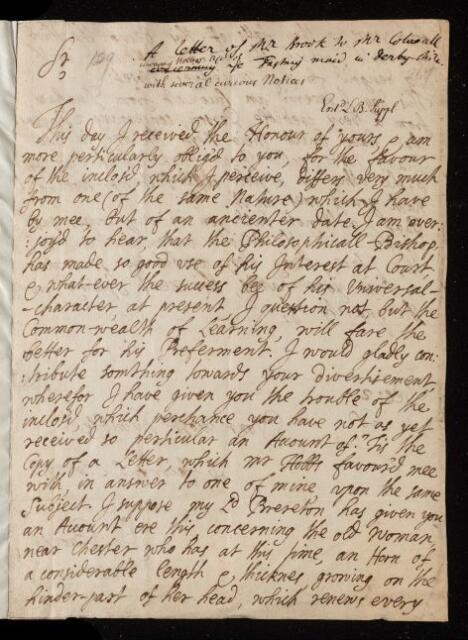 Sr
139
A letter of Mr Brook to Mr Colwall
concerning ye Fasting maid in derby-shire
with several curious Notices
Entd L.B. Suppl
This day I received the Honour of yours & am
more perticularly oblig'd to you, for the favour
of the inclosd which I perceive, differs very much
from one (of the same Nature) which I have
by mee, out of an ancienter date. I am over:
:joyd to hear, that the Philosophicall Bishop
has made so good vse of his Interest at Court
& what-ever the success bee of his Universal-
-character at present I question not, but the
Common-wealth of Learning, will fare the
better for his Preferment. I would gladly con:
:tribute somthing towards your divertisement
wherefor I have given you the trouble of the
inclosd, which perchance you have not as yet
received so perticular an Account of. 'Tis the
Copy of a Letter, which mr Hobbs favour'd mee
with, in answer to one of mine vpon the same
Subject. I suppose my Ld Brereton has given you
an Account ere this concerning the old woman
near Chester who has at this time, an Horn of
a considerable length & thicknes growing on the
hinder-part of her head, which renews every